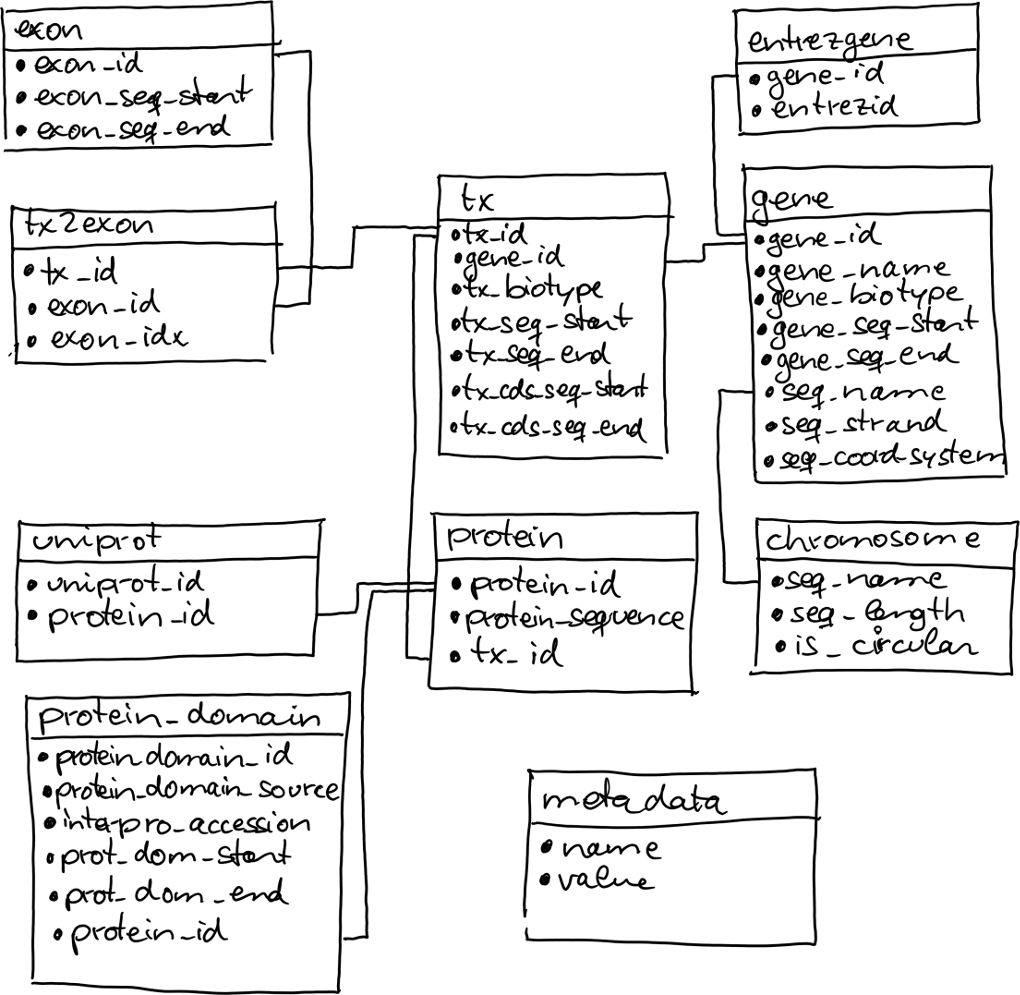 exon
• exon_id
• exon_seq_start
• exon_seq_end
entrezgene
• gene_id
• entrezid
tx2exon
• tx_id
• exon_id
• exon_idx
tx
• tx_id
• gene_id
• tx_biotype
• tx_seq_start
• tx_seq_end
• tx_cds_seq_start
• tx_cds_seq_end
gene
• gene_id
• gene_name
• gene_biotype
• gene_seq_start
• gene_seq_end
• seq_name
• seq_strand
• seq_coord_system
uniprot
• uniprot_id
• protein_id
protein
• protein_id
• protein_sequence
• tx_id
chromosome
• seq_name
• seq_length
• is_circular
protein_domain
• protein_domain_id
• protein_domain_source
• interpro_accession
• prot_dom_start
• prot_dom_end
• protein_id
metadata
• name
• value